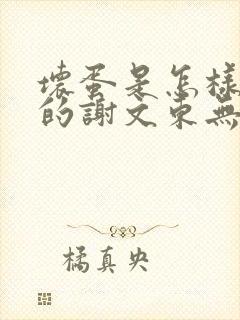 壞蛋是怎樣
的謝文東無
橘真央